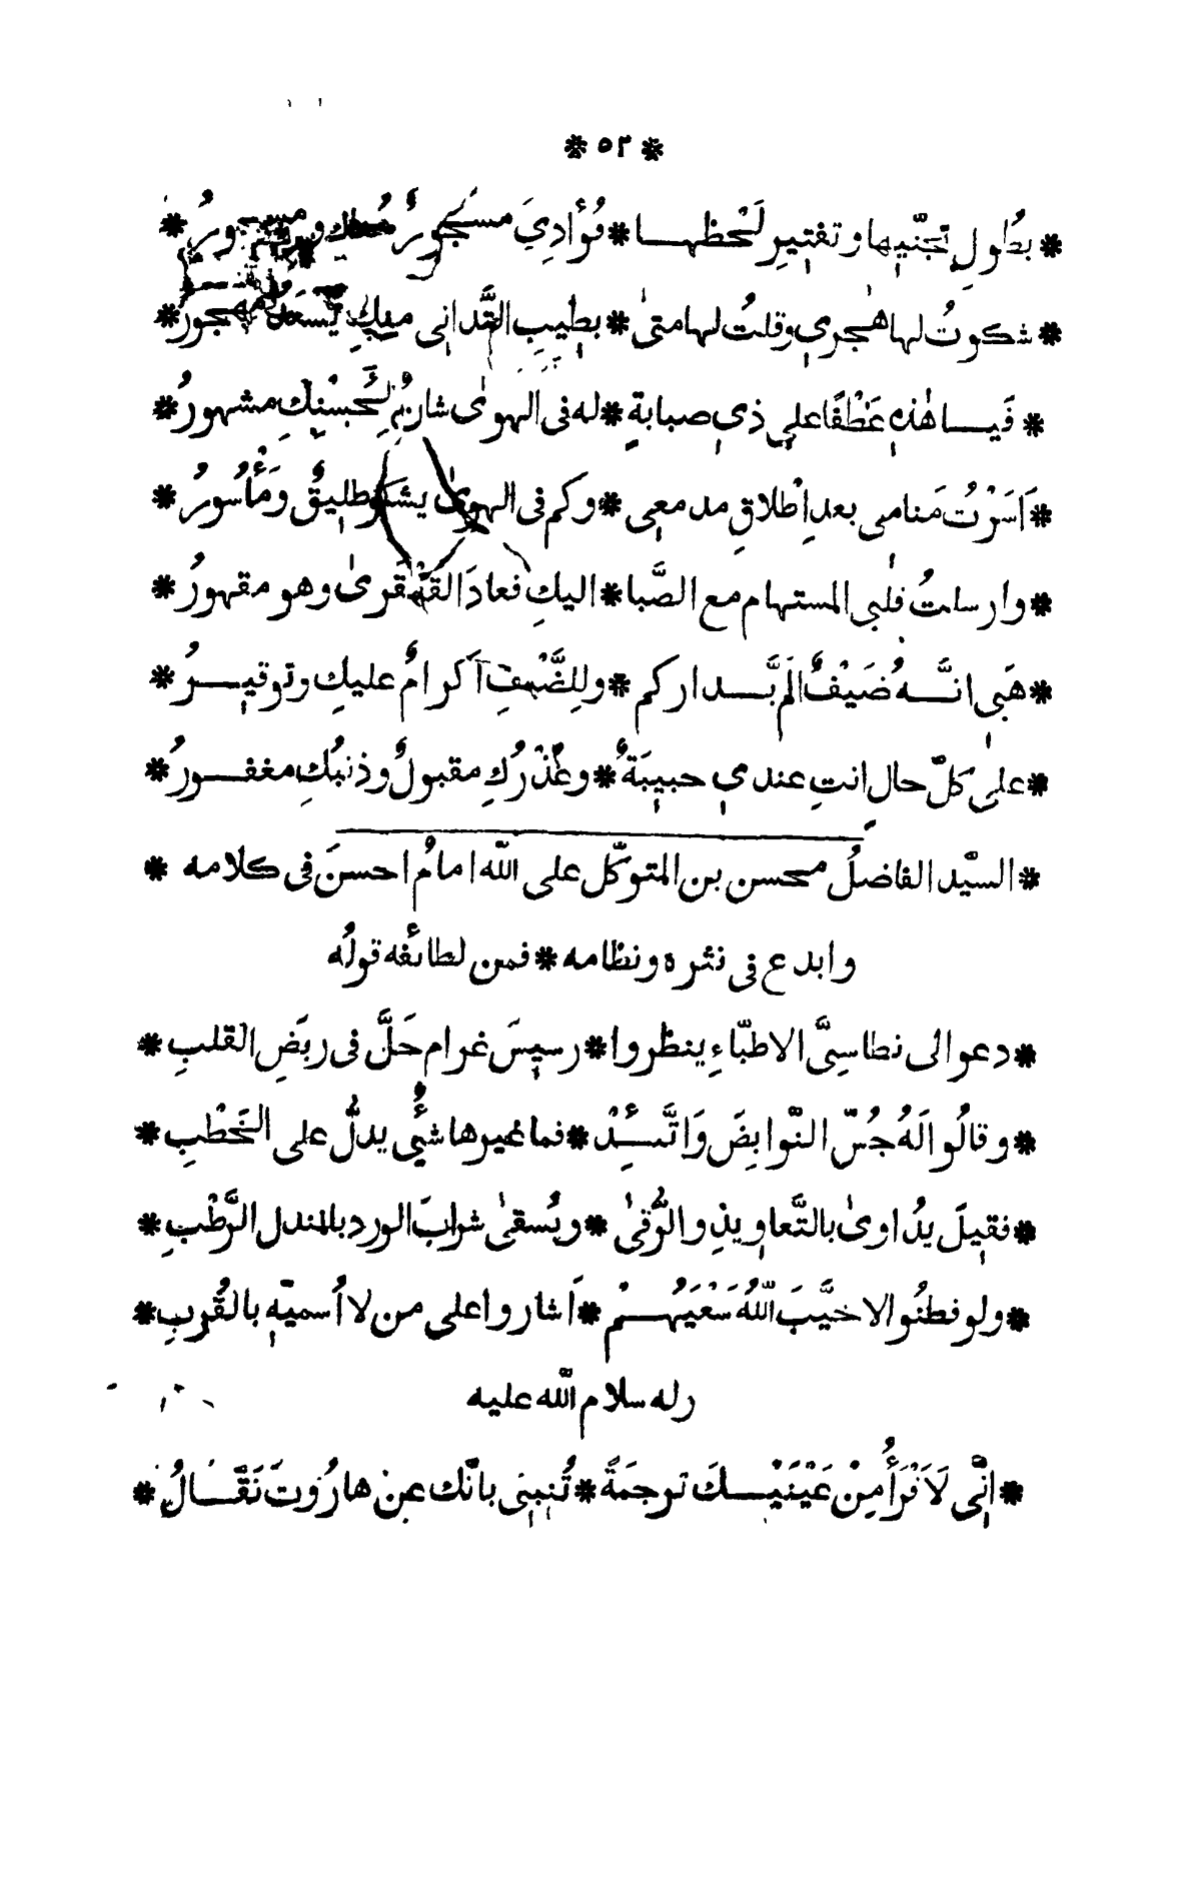 * ٥٢ *
* بطُولِ تجنّيها وتفتيرِ لَحْظهـا * فُؤادِيَ مسجُورٌ ومسحورُ *
* شكوتُ لها هٰجري وقلتُ لها متىٰ * بطيبِ التَّدانى منكِ يَسعَدُ مهجورُ *
* فَيـا هٰذهِ عَطْفًا على ذي صبابةٍ * له فى الهوىٰ شانٌ لِحُسْنِكِ مشهورُ *
* اَسَرْتُ مَنامى بعدِ اِطْلاقِ مدمعي * وكم فى الهوىٰ يشكو طليقٌ ومَأْسُورُ *
* وارسلتُ قلبى المستهام مع الصَّبا * اليكِ فعادَ القَهْقَرىٰ وهو مقهورُ *
* هَبي انَّـهُ ضَيْفٌ اَلَمَّ بَـداركم * ولِلضَّيْفِ اَكرامٌ عليكِ وتوقيـرُ *
* على كلّ حالٍ انتِ عندي حبيبَةٌ * وعُذْرُكِ مقبولٌ وذنبُكِ مغفـورُ *
* السيّد الفاضلُ محسن بن المتوكّل على اللّه امامٌ احسنَ فى كلامه *
وابدع فى نثره ونظامه * فمن لطائفه قولُه
* دعوا لى نطاسِىَّ الاطبّاءِ ينظروا * رسيسَ غرام حَلَّ فى ربَضِ القلبِ *
* وقالُوا لَهُ جُسّ النّوابِضَ وَاتَّـئِدْ * فما غيرها شئُ يدلُّ على الخَطْبِ *
* فقيلَ يدُاوىٰ بالتَّعاويذِ والرُّقىٰ * ويُسقىٰ شرابَ الورد بالمندل الرَّطْبِ *
* ولو فطنُوا لا خيَّبَ اللّٰهُ سَعْيَهُـمْ * اَشاروا على من لا اُسميّهِ بالقُربِ *
وله سلام اللّه عليه
* انِّى لَاَقْرَأُ مِنْ عَيْنَيْـكَ ترجمَةً * تُنبِىٰ بانّك عن هارُوتَ نَقَّـالُ *